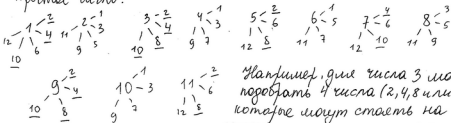 1 2 4 6 10 12
2 1 3 5 9 11
3 2 4 8 10
4 1 3 7 9
5 2 6 8 12
6 1 5 7 11
7 4 6 10 12
8 3 5 9 11
9 2 4 8 10
10 1 3 7 9
11 2 6 8 12
Например, для числа 3 мо
подобрать 4 числа (2,4,8 или
которые могут стоять на